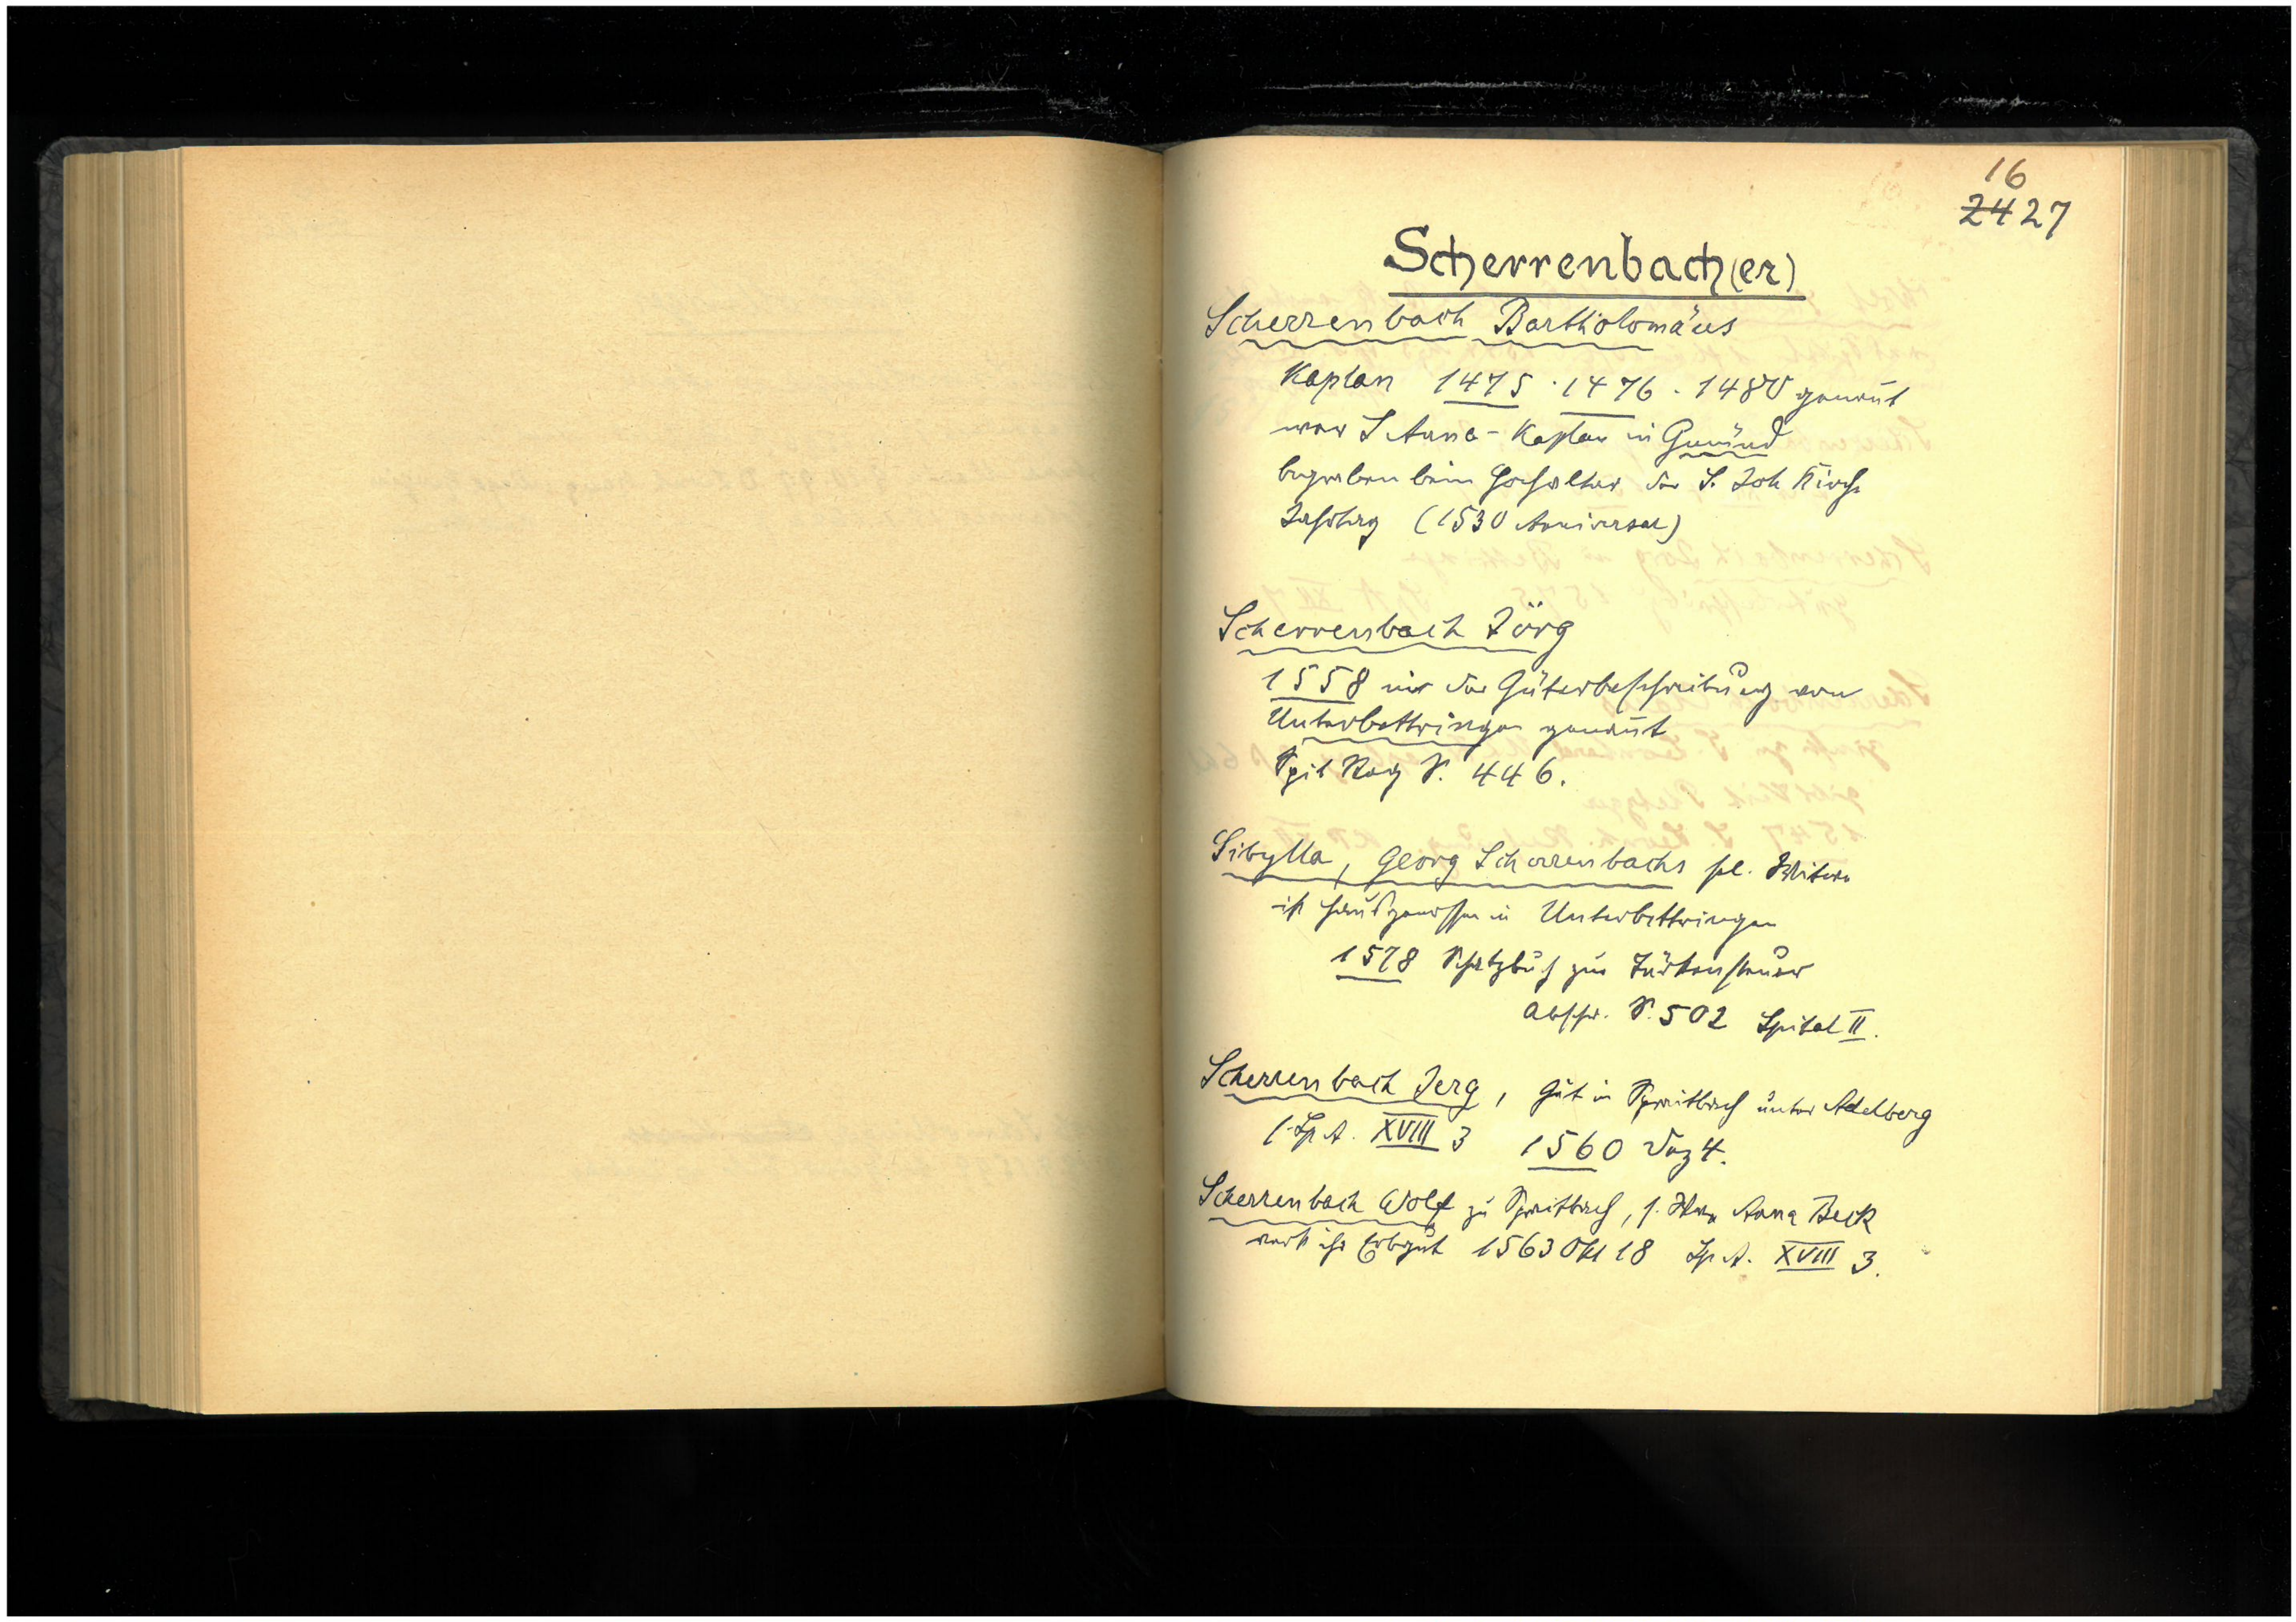 16
24 27
Scherrenbach(er)
Scherrenbach Bartholomäus
Kaplan 1475 . 1476 . 1480 genannt
war S Anna-Kaplan in Gmünd
begraben beim Hochaltar der S. Joh Kirche
(1530 Anniversar)
Scherrenbach Jörg
1558 in der Güterbeschreibung von
Unterbettringen genannt
Spit Reg S. 446.
Sibylla, Georg Scherrenbachs sel. Witwe
ist Hausgenossin in Unterbettringen
1578 Schatzbuch zur Türkensteuer
Abschr. S. 502 Spital II.
Scherrenbach Jerg, Gut in Spraitbach unter Adelberg
Sp A. XVIII 3 1560 Dez 4.
Scherrenbach Wolf zu Spraitbach, s. Anna Beck
verk ihr Erbgut 1563 Okt 18 Sp A. XVIII 3.